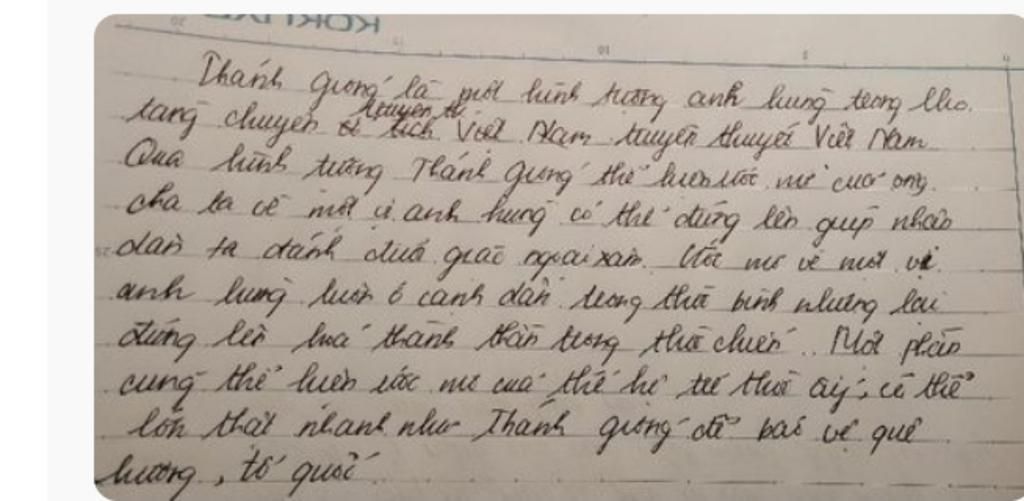 KORIXL
Thánh Gióng là một hình tượng anh hùng trong kho
tàng chuyện cổ tích Việt Nam truyền thuyết Việt Nam
truyện tr
Qua hình tượng Thánh Gióng thể hiện ước mơ của ông
cha ta về một vị anh hùng có thể đứng lên giúp nhân
dân ta đánh đuổi giặc ngoại xâm. Ước mơ về một vị
anh hùng luôn ở cạnh dân trong thời bình nhưng lại
đứng lên hoá thành thần trong thời chiến. Một phần
cũng thể hiện ước mơ của thế hệ trẻ thời ấy, có thể
lớn thật nhanh như Thánh gióng để bảo vệ quê
hương, tổ quốc